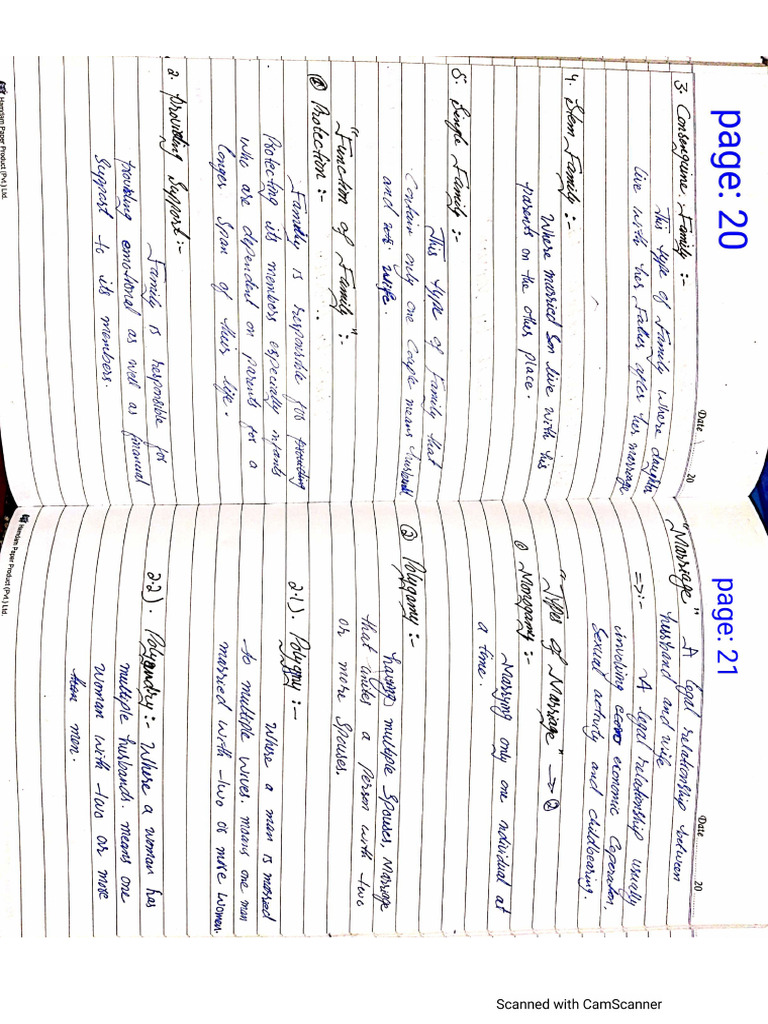 page: 20
Date 20
3. Consenguine Family :-
This type of Family where daughter
live with her Father after her marriage
4. Stem Family :-
Where married son live with his
parents on the other place.
5. Single Family :-
This type of Family that
Contain only one couple means husband
and wife.
"Function of Family" :-
① Protection :-
Family is responsible for providing
Protecting its members especially infants
who are dependent on parents for a
longer Span of their life.
2. Providing Support :-
Family is responsible for
providing emotional as well as financial
Support to its members.
Hamdam Paper Product (Pvt.) Ltd.
page: 21
Date 20
"Marriage" A legal relationship between
husband and wife
=>:- A legal relationship usually
involving economic Coperation,
Sexual activity and childbearing.
"Types of Marriage" -> ②
① Monogamy :-
Marrying only one individual at
a time.
② Polygamy :-
having multiple Spouses, Marriage
that unites a person with two
or more Spouses.
2.1). Polygny :-
Where a man is married
to multiple wives. means one man
married with two or more women.
2.2). Polyandry :- Where a woman has
multiple husbands. means one
woman with two or more
than men.
Hamdam Paper Product (Pvt.) Ltd.
Scanned with CamScanner